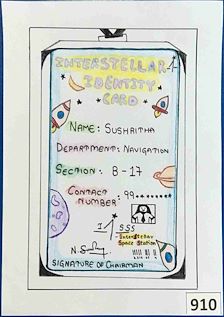 INTERSTELLAR
IDENTITY
CARD
NAME: SUSHRITHA
DEPARTMENT: NAVIGATION
SECTION: B-17
CONTACT NUMBER: 99
SSS
INTERSTELLAR
SPACE STATION
SIGNATURE OF CHAIRMAN
910